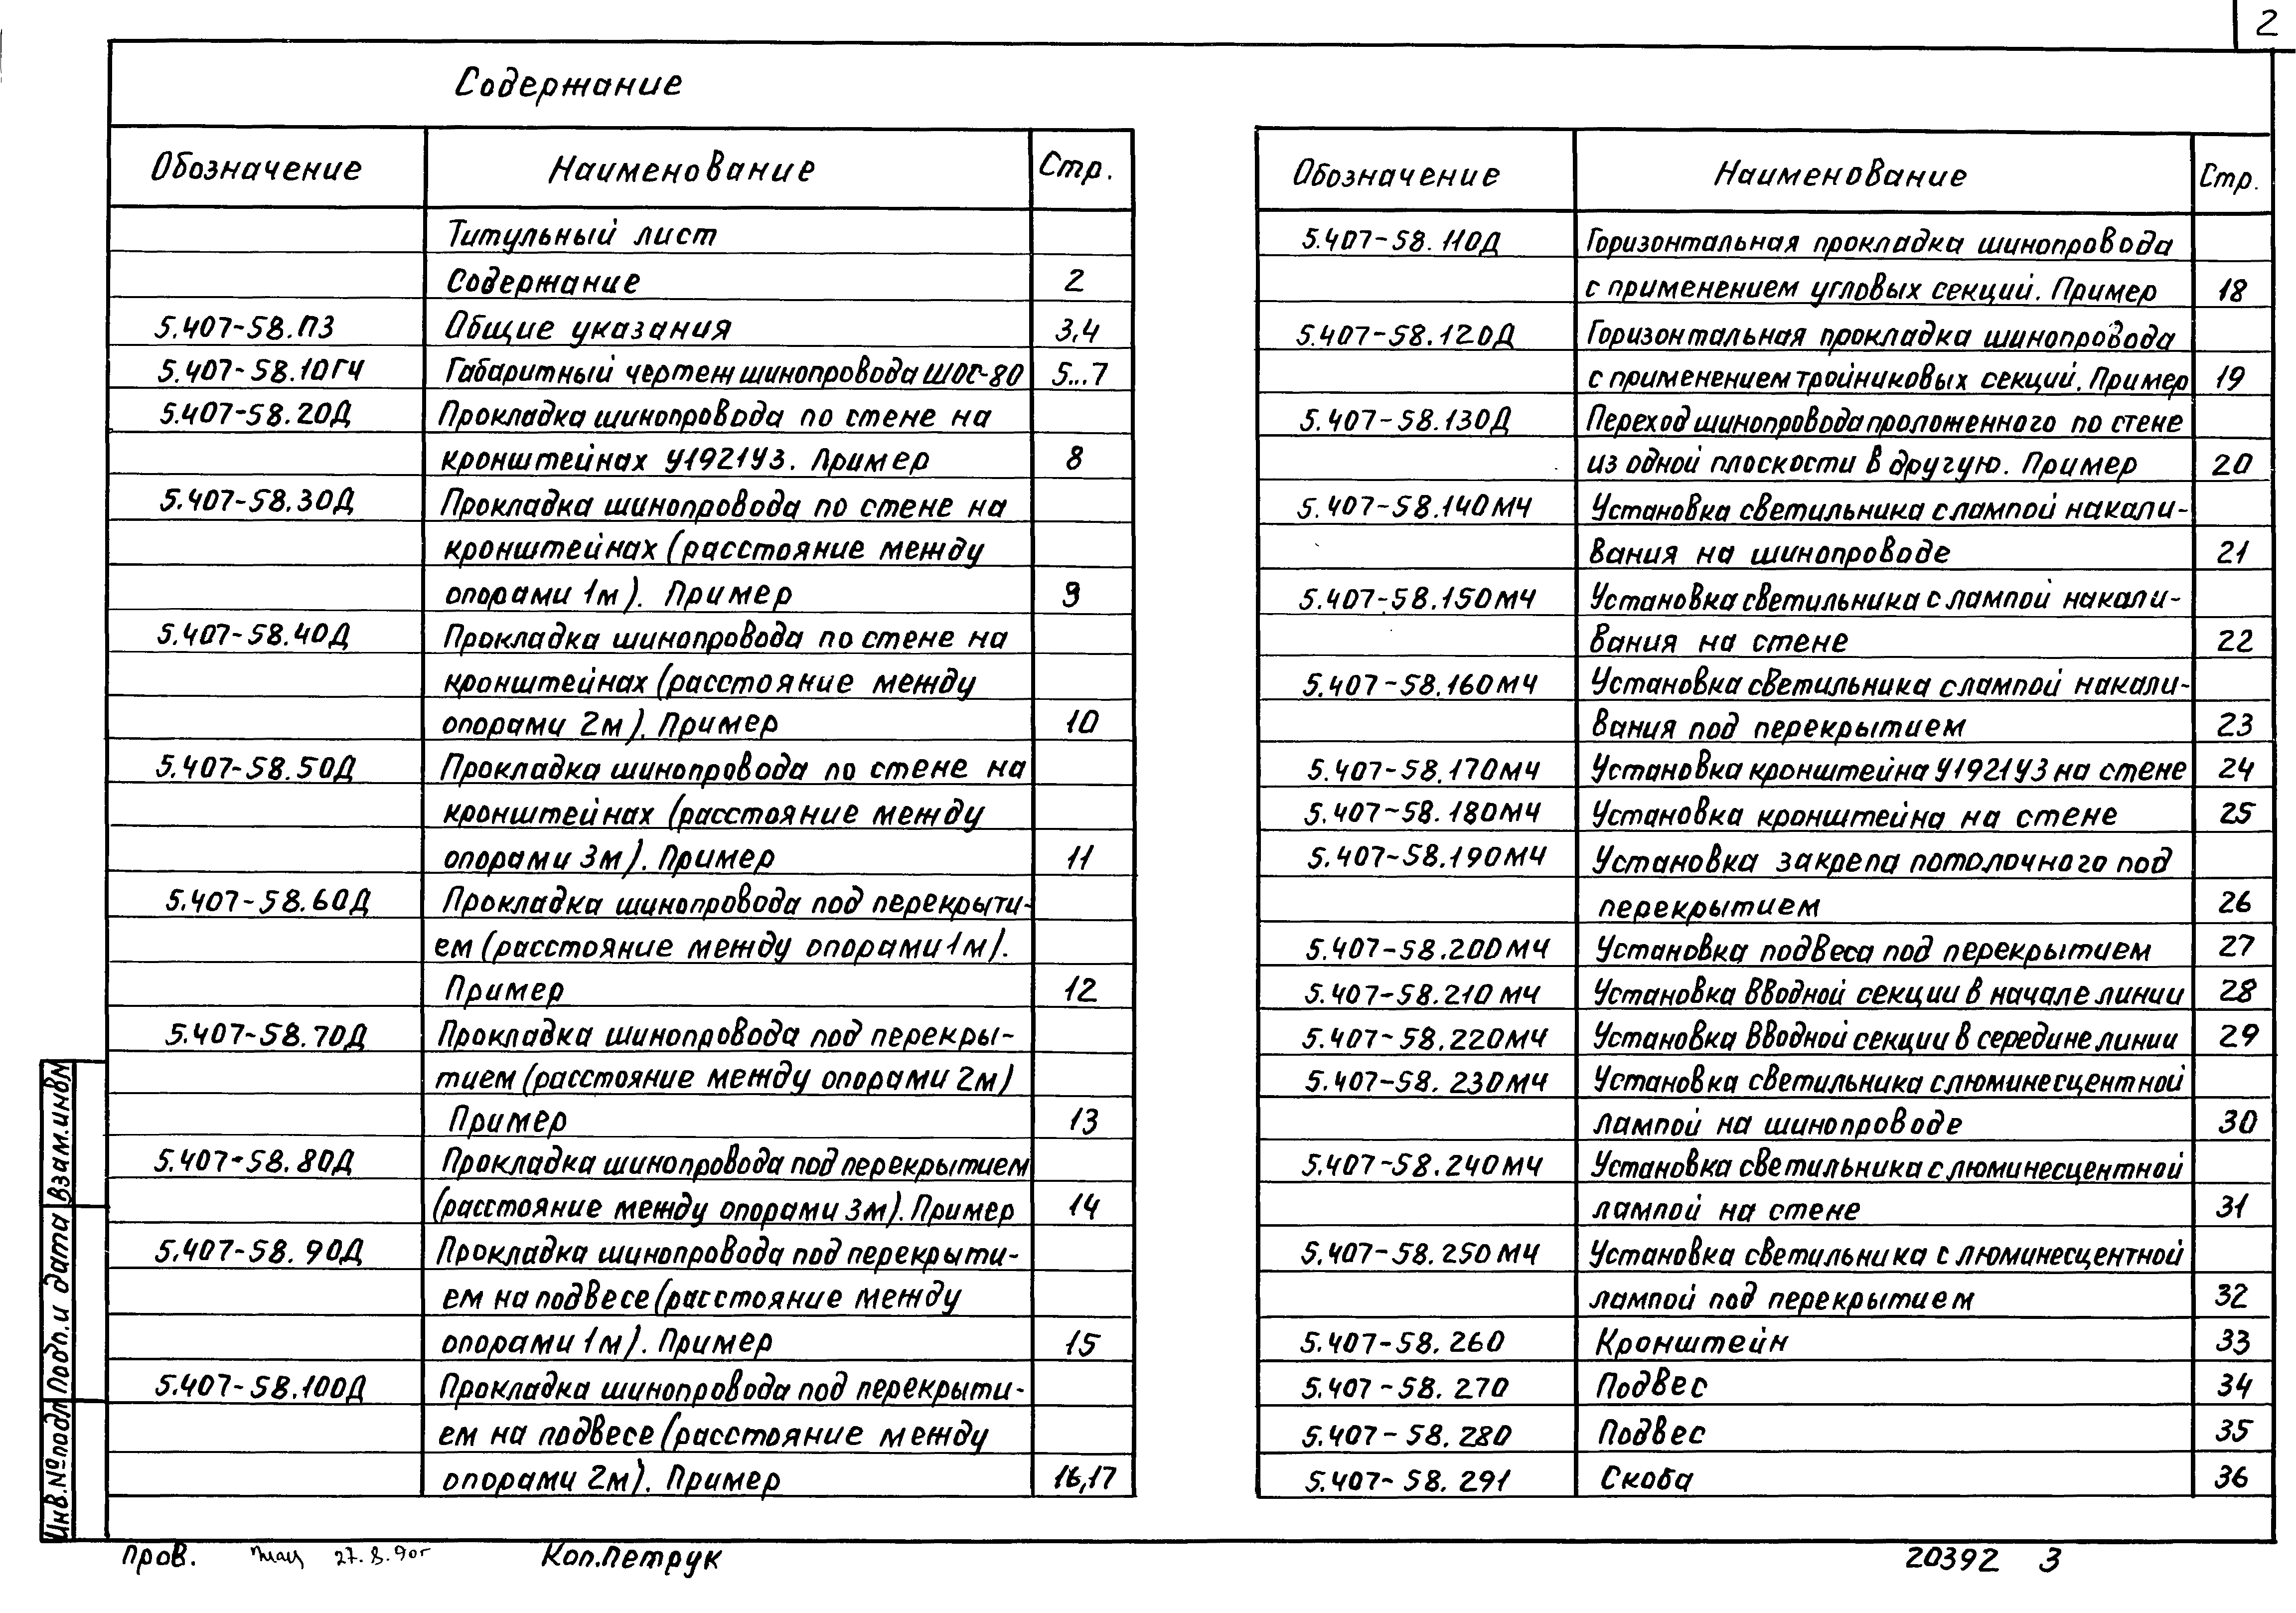 2
Содержание
Обозначение Наименование Стр.
Титульный лист
Содержание 2
5.407-58.ПЗ Общие указания 3,4
5.407-58.10ГЧ Габаритный чертеж шинопровода ШОС-80 5...7
5.407-58.20Д Прокладка шинопровода по стене на
кронштейнах У1921У3. Пример 8
5.407-58.30Д Прокладка шинопровода по стене на
кронштейнах (расстояние между
опорами 1м). Пример 9
5.407-58.40Д Прокладка шинопровода по стене на
кронштейнах (расстояние между
опорами 2м). Пример 10
5.407-58.50Д Прокладка шинопровода по стене на
кронштейнах (расстояние между
опорами 3м). Пример 11
5.407-58.60Д Прокладка шинопровода под перекрыти-
ем (расстояние между опорами 1м).
Пример 12
5.407-58.70Д Прокладка шинопровода под перекры-
тием (расстояние между опорами 2м)
Пример 13
5.407-58.80Д Прокладка шинопровода под перекрытием
(расстояние между опорами 3м). Пример 14
5.407-58.90Д Прокладка шинопровода под перекрыти-
ем на подвесе (расстояние между
опорами 1м). Пример 15
5.407-58.100Д Прокладка шинопровода под перекрыти-
ем на подвесе (расстояние между
опорами 2м). Пример 16,17
Обозначение Наименование Стр.
5.407-58.110Д Горизонтальная прокладка шинопровода
с применением угловых секций. Пример 18
5.407-58.120Д Горизонтальная прокладка шинопровода
с применением тройниковых секций. Пример 19
5.407-58.130Д Переход шинопровода проложенного по стене
из одной плоскости в другую. Пример 20
5.407-58.140МЧ Установка светильника с лампой накали-
вания на шинопроводе 21
5.407-58.150МЧ Установка светильника с лампой накали-
вания на стене 22
5.407-58.160МЧ Установка светильника с лампой накали-
вания под перекрытием 23
5.407-58.170МЧ Установка кронштейна У1921У3 на стене 24
5.407-58.180МЧ Установка кронштейна на стене 25
5.407-58.190МЧ Установка закрепа потолочного под
перекрытием 26
5.407-58.200МЧ Установка подвеса под перекрытием 27
5.407-58.210МЧ Установка вводной секции в начале линии 28
5.407-58.220МЧ Установка вводной секции в середине линии 29
5.407-58.230МЧ Установка светильника с люминесцентной
лампой на шинопроводе 30
5.407-58.240МЧ Установка светильника с люминесцентной
лампой на стене 31
5.407-58.250МЧ Установка светильника с люминесцентной
лампой под перекрытием 32
5.407-58.260 Кронштейн 33
5.407-58.270 Подвес 34
5.407-58.280 Подвес 35
5.407-58.291 Скоба 36
Взам.инв№
Подп.и дата
Инв.№подл
пров. 27.8.90г Коп.Петрук 20392 3